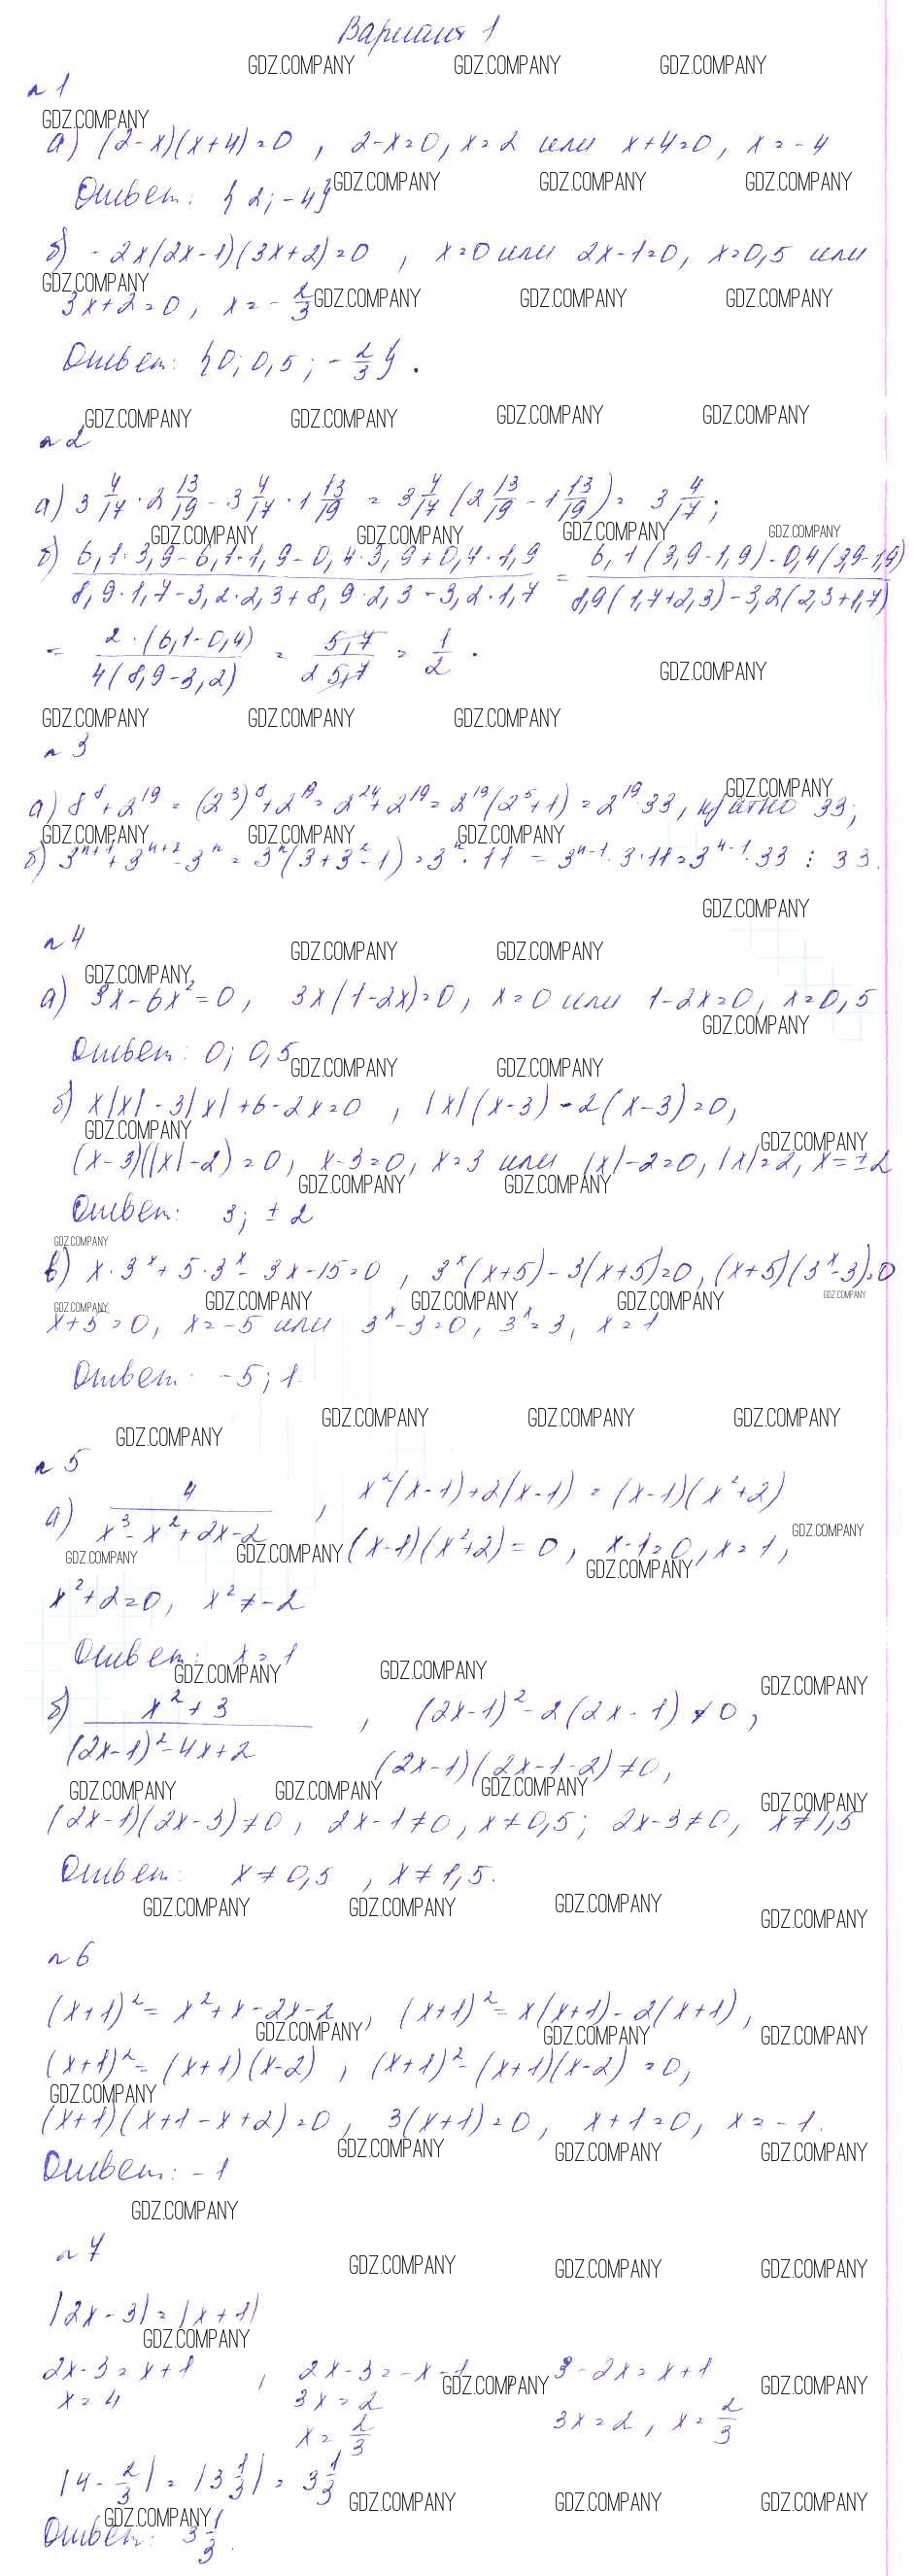 Вариант 1
GDZ.COMPANY GDZ.COMPANY GDZ.COMPANY
n 1
GDZ.COMPANY
а) (2-x)(x+4)=0 , 2-x=0, x=2 или x+4=0, x=-4
Ответ: {2; -4} GDZ.COMPANY GDZ.COMPANY GDZ.COMPANY
б) -2x(2x-1)(3x+2)=0 , x=0 или 2x-1=0, x=0,5 или
GDZ.COMPANY
3x+2=0, x=-2/3 GDZ.COMPANY GDZ.COMPANY GDZ.COMPANY
Ответ: {0; 0,5; -2/3}.
GDZ.COMPANY GDZ.COMPANY GDZ.COMPANY GDZ.COMPANY
n 2
а) 3 4/17 · 2 13/19 - 3 4/17 · 1 13/19 = 3 4/17 (2 13/19 - 1 13/19) = 3 4/17;
GDZ.COMPANY GDZ.COMPANY GDZ.COMPANY GDZ.COMPANY
б) (6,1·3,9-6,1·1,9-0,4·3,9+0,4·1,9)/(8,9·1,7-3,2·2,3+8,9·2,3-3,2·1,7) = (6,1(3,9-1,9)-0,4(3,9-1,9))/(8,9(1,7+2,3)-3,2(2,3+1,7))
= (2·(6,1-0,4))/(4(8,9-3,2)) = 5,7/(2 5,7) = 1/2.
GDZ.COMPANY
GDZ.COMPANY GDZ.COMPANY GDZ.COMPANY
n 3
GDZ.COMPANY
а) 8⁸+2¹⁹ = (2³)⁸+2¹⁹ = 2²⁴+2¹⁹ = 2¹⁹(2⁵+1) = 2¹⁹·33, кратно 33;
GDZ.COMPANY GDZ.COMPANY GDZ.COMPANY
б) 3ⁿ⁺¹+3ⁿ⁺²-3ⁿ = 3ⁿ(3+3²-1) = 3ⁿ·11 = 3ⁿ⁻¹·3·11 = 3ⁿ⁻¹·33 ⋮ 33.
GDZ.COMPANY
n 4
GDZ.COMPANY GDZ.COMPANY
GDZ.COMPANY
а) 3x-6x²=0, 3x(1-2x)=0, x=0 или 1-2x=0, x=0,5
GDZ.COMPANY
Ответ: 0; 0,5
GDZ.COMPANY GDZ.COMPANY
б) x|x|-3|x|+6-2x=0 , |x|(x-3)-2(x-3)=0,
GDZ.COMPANY GDZ.COMPANY
(x-3)(|x|-2)=0, x-3=0, x=3 или |x|-2=0, |x|=2, x=±2
GDZ.COMPANY GDZ.COMPANY
Ответ: 3; ±2
GDZ.COMPANY
в) x·3ˣ+5·3ˣ-3x-15=0 , 3ˣ(x+5)-3(x+5)=0, (x+5)(3ˣ-3)=0
GDZ.COMPANY GDZ.COMPANY GDZ.COMPANY GDZ.COMPANY GDZ.COMPANY
x+5=0, x=-5 или 3ˣ-3=0, 3ˣ=3, x=1
Ответ: -5; 1.
GDZ.COMPANY GDZ.COMPANY GDZ.COMPANY
GDZ.COMPANY
n 5
а) 4/(x³-x²+2x-2) , x²(x-1)+2(x-1) = (x-1)(x²+2)
GDZ.COMPANY
GDZ.COMPANY GDZ.COMPANY (x-1)(x²+2)=0, x-1=0, x=1,
GDZ.COMPANY
x²+2=0, x²≠-2
Ответ: x=1
GDZ.COMPANY GDZ.COMPANY GDZ.COMPANY
б) (x²+3)/((2x-1)²-4x+2) , (2x-1)²-2(2x-1)≠0,
(2x-1)(2x-1-2)≠0,
GDZ.COMPANY GDZ.COMPANY GDZ.COMPANY GDZ.COMPANY
(2x-1)(2x-3)≠0, 2x-1≠0, x≠0,5; 2x-3≠0, x≠1,5
Ответ: x≠0,5 , x≠1,5.
GDZ.COMPANY GDZ.COMPANY GDZ.COMPANY GDZ.COMPANY
n 6
(x+1)²=x²+x-2x-2, (x+1)²=x(x+1)-2(x+1),
GDZ.COMPANY GDZ.COMPANY GDZ.COMPANY
(x+1)²=(x+1)(x-2) , (x+1)²-(x+1)(x-2)=0,
GDZ.COMPANY
(x+1)(x+1-x+2)=0, 3(x+1)=0, x+1=0, x=-1.
GDZ.COMPANY GDZ.COMPANY GDZ.COMPANY
Ответ: -1
GDZ.COMPANY
n 7
GDZ.COMPANY GDZ.COMPANY GDZ.COMPANY
|2x-3|=|x+1|
GDZ.COMPANY
2x-3=x+1 , 2x-3=-x-1 , 3-2x=x+1
GDZ.COMPANY GDZ.COMPANY
x=4 3x=2 3x=2, x=2/3
x=2/3
|4-2/3|=|3 1/3|=3 1/3
GDZ.COMPANY GDZ.COMPANY GDZ.COMPANY
GDZ.COMPANY
Ответ: 3 1/3.